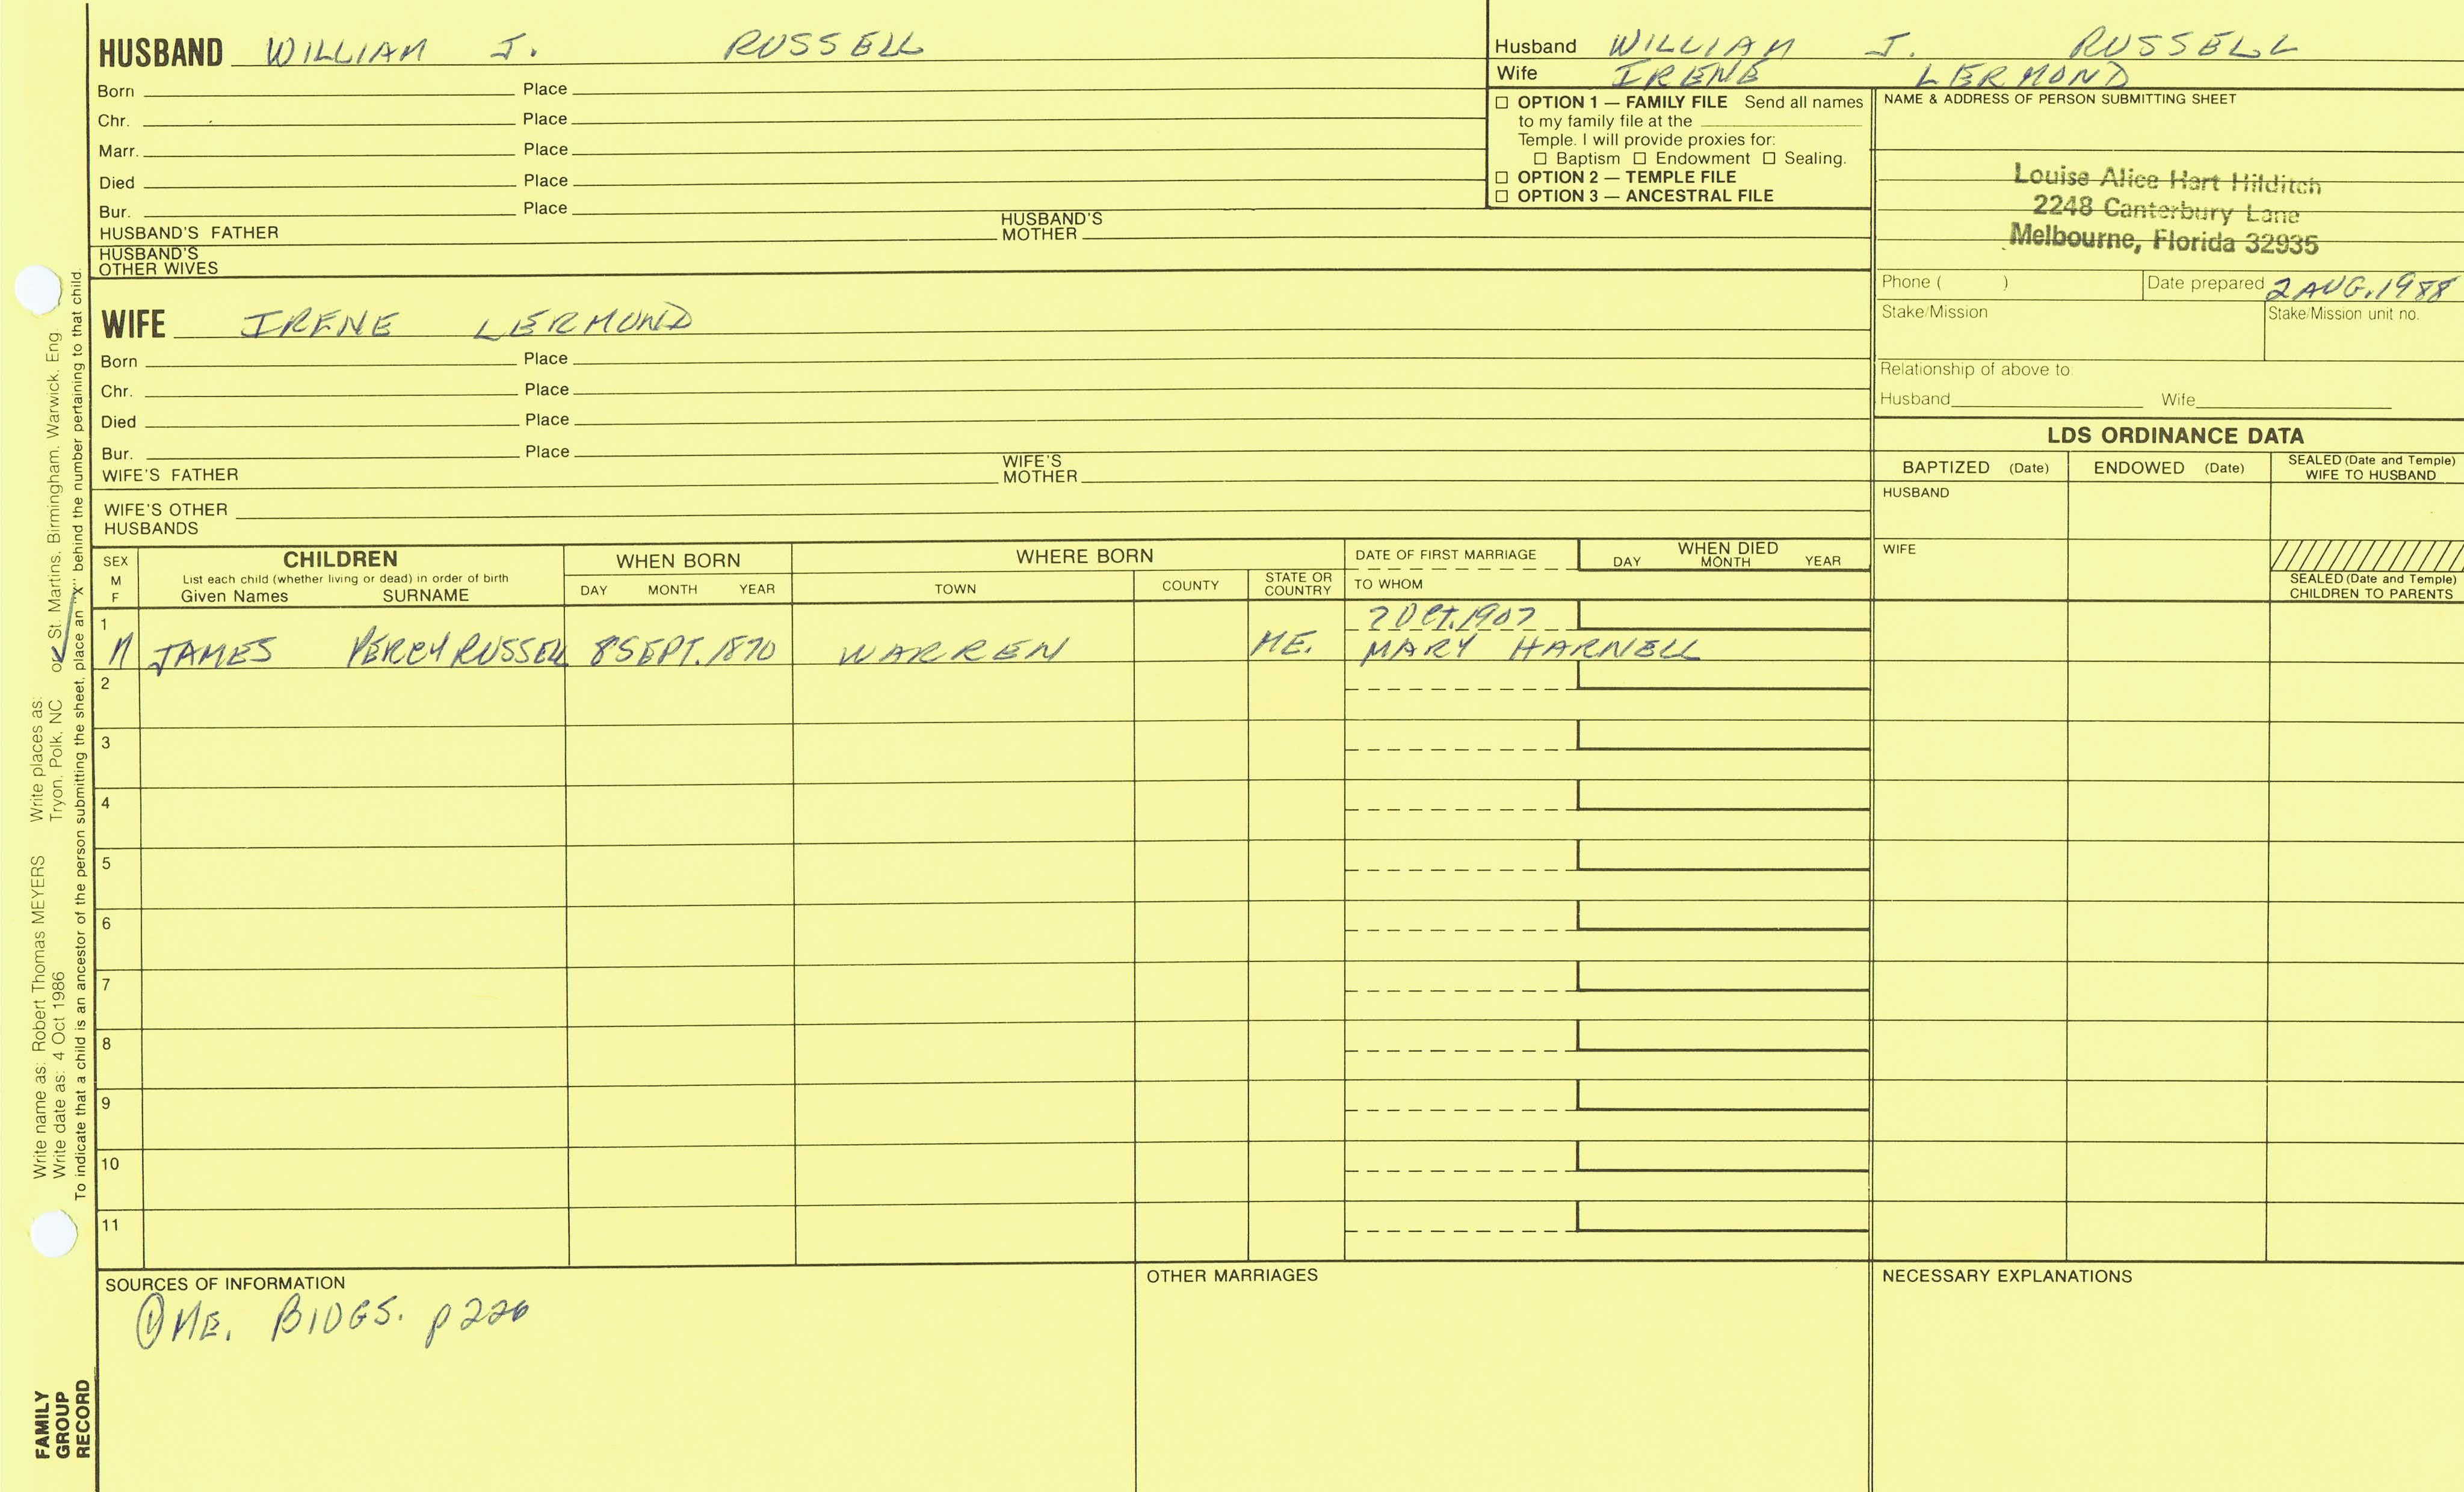 HUSBAND WILLIAM J. RUSSELL
Born Place
Chr. Place
Marr. Place
Died Place
Bur. Place
HUSBAND'S FATHER HUSBAND'S MOTHER
HUSBAND'S OTHER WIVES
Husband WILLIAM J. RUSSELL
Wife IRENE LERMOND
☐ OPTION 1 — FAMILY FILE Send all names
to my family file at the
Temple. I will provide proxies for:
☐ Baptism ☐ Endowment ☐ Sealing.
☐ OPTION 2 — TEMPLE FILE
☐ OPTION 3 — ANCESTRAL FILE
NAME & ADDRESS OF PERSON SUBMITTING SHEET
Louise Alice Hart Hilditch
2248 Canterbury Lane
Melbourne, Florida 32935
Phone ( ) Date prepared 2 AUG. 1988
Stake/Mission Stake/Mission unit no.
Relationship of above to:
Husband Wife
WIFE IRENE LERMOND
Born Place
Chr. Place
Died Place
Bur. Place
WIFE'S FATHER WIFE'S MOTHER
WIFE'S OTHER HUSBANDS
LDS ORDINANCE DATA
BAPTIZED (Date) ENDOWED (Date) SEALED (Date and Temple) WIFE TO HUSBAND
HUSBAND
WIFE
SEALED (Date and Temple) CHILDREN TO PARENTS
SEX M F
CHILDREN
List each child (whether living or dead) in order of birth
Given Names SURNAME
WHEN BORN
DAY MONTH YEAR
WHERE BORN
TOWN COUNTY STATE OR COUNTRY
DATE OF FIRST MARRIAGE
TO WHOM
WHEN DIED
DAY MONTH YEAR
1 7 OCT. 1907
M JAMES PERCY RUSSELL 8 SEPT. 1870 WARREN ME. MARY HARNELL
2
3
4
5
6
7
8
9
10
11
SOURCES OF INFORMATION
① ME. BIOGS. p 226
OTHER MARRIAGES
NECESSARY EXPLANATIONS
Write name as: Robert Thomas MEYERS Write places as:
Write date as: 4 Oct 1986 Tryon, Polk, NC or St. Martins, Birmingham, Warwick, Eng.
To indicate that a child is an ancestor of the person submitting the sheet, place an "X" behind the number pertaining to that child.
FAMILY
GROUP
RECORD